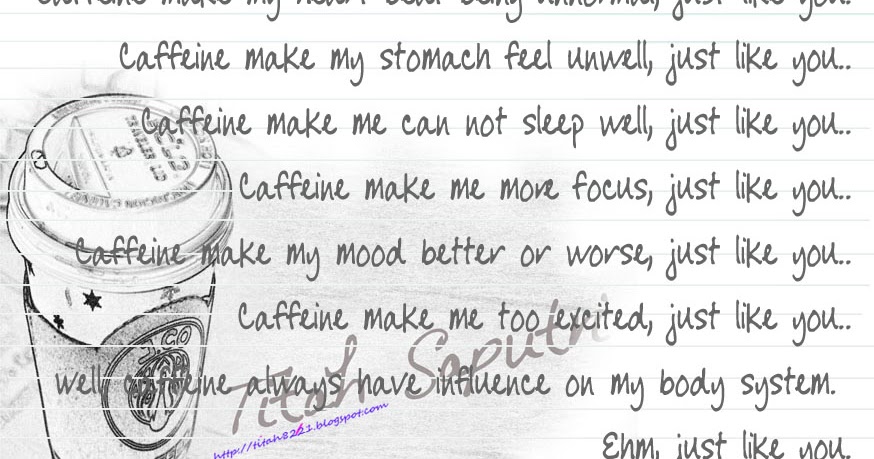 Caffeine make my heart beat being unnormal, just like you.
Caffeine make my stomach feel unwell, just like you..
Caffeine make me can not sleep well, just like you..
Caffeine make me more focus, just like you..
Caffeine make my mood better or worse, just like you..
Caffeine make me too excited, just like you..
well, caffeine always have influence on my body system.
Titah Saputri
http://titah8221.blogspot.com
Ehm, just like you.